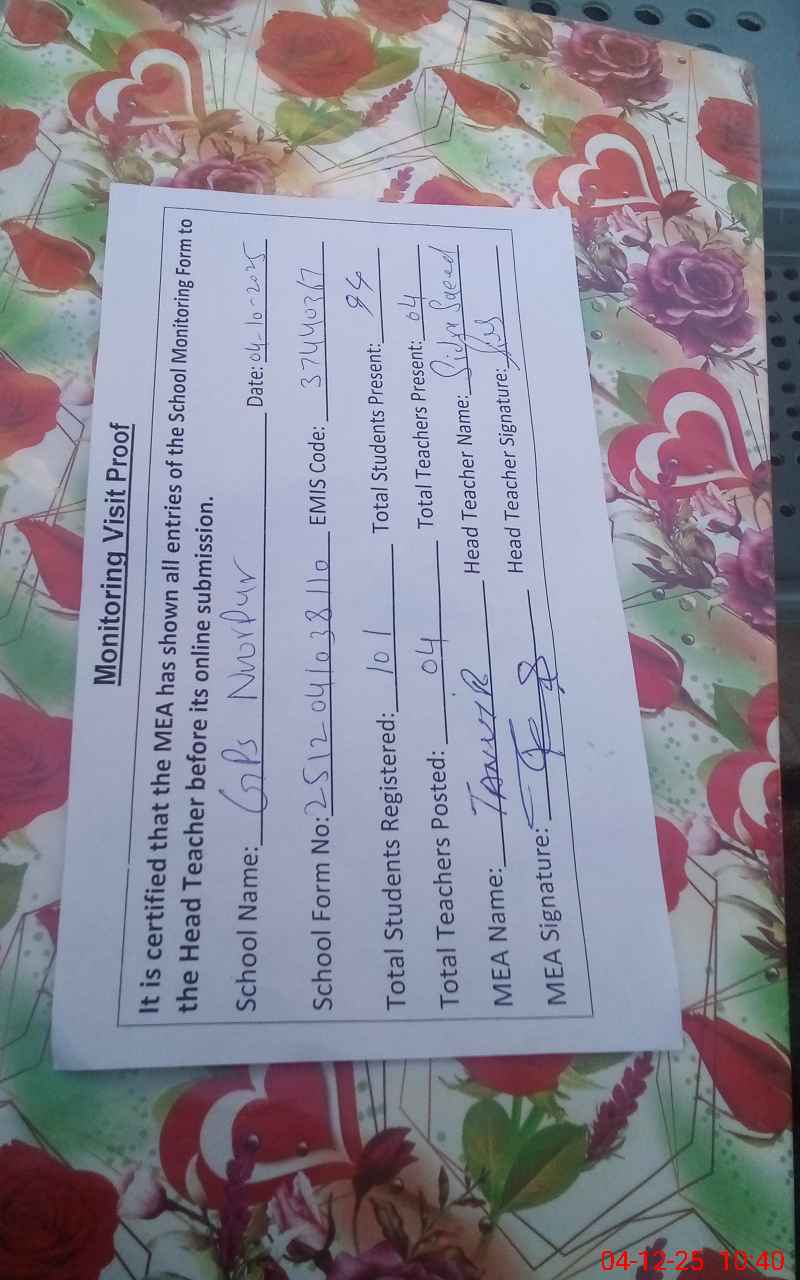 Monitoring Visit Proof
It is certified that the MEA has shown all entries of the School Monitoring Form to
the Head Teacher before its online submission.
School Name: GPS Nuurpur Date: 04-10-2025
School Form No: 2512041038110 EMIS Code: 37440367
Total Students Registered: 101 Total Students Present: 94
Total Teachers Posted: 04 Total Teachers Present: 04
MEA Name: TANVIR Head Teacher Name: Sidra Saeed
MEA Signature: Head Teacher Signature:
04-12-25 10:40